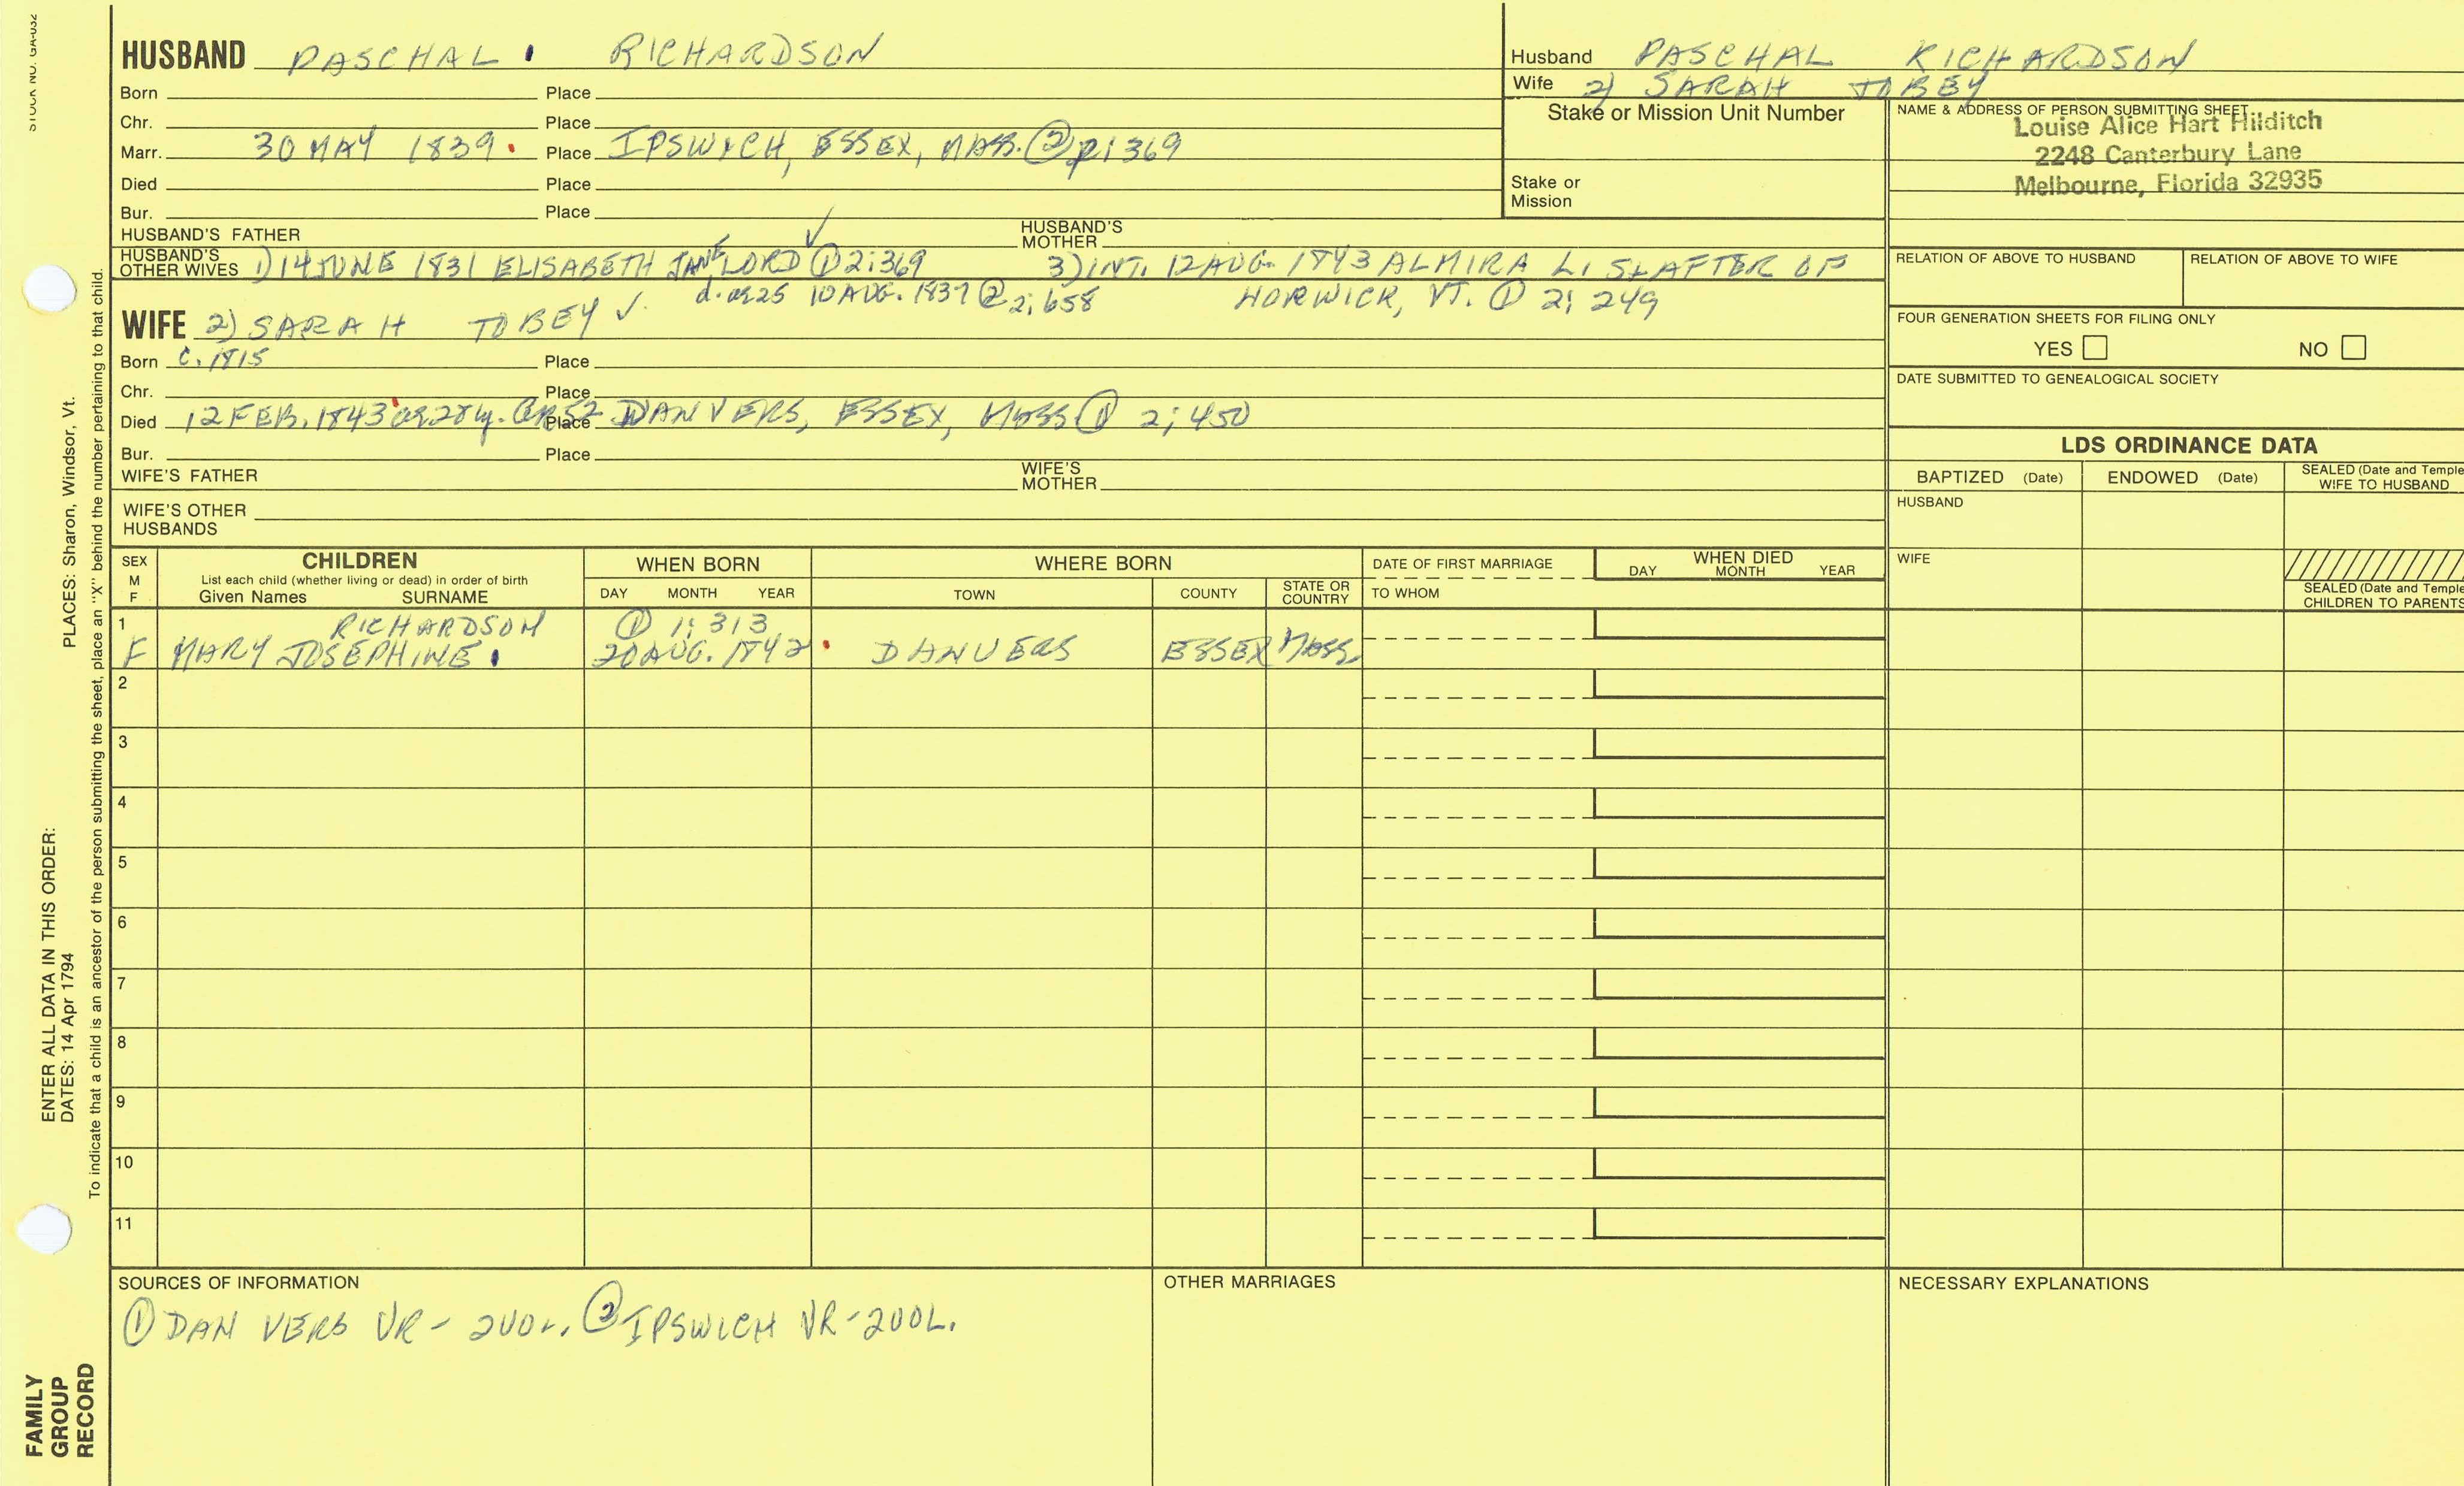 STOCK NO. GA-032
HUSBAND PASCHAL RICHARDSON
Born Place
Chr. Place
Marr. 30 MAY 1839 Place IPSWICH, ESSEX, MASS. ② p; 369
Died Place
Bur. Place
HUSBAND'S FATHER HUSBAND'S MOTHER
HUSBAND'S OTHER WIVES 1) 14 JUNE 1831 ELISABETH JANE LORD ① 2; 369 3) INT. 12 AUG. 1843 ALMIRA L. SLAFTER OF
d. ae 25 10 AUG. 1837 ② 2; 658 HORWICK, VT. ① 2; 249
WIFE 2) SARAH TOBEY ✓.
Born c. 1815 Place
Chr. Place
Died 12 FEB. 1843 ae 28 y. GR52 Place DANVERS, ESSEX, MASS ① 2; 450
Bur. Place
WIFE'S FATHER WIFE'S MOTHER
WIFE'S OTHER HUSBANDS
Husband PASCHAL RICHARDSON
Wife 2) SARAH TOBEY
Stake or Mission Unit Number
Stake or
Mission
NAME & ADDRESS OF PERSON SUBMITTING SHEET
Louise Alice Hart Hilditch
2248 Canterbury Lane
Melbourne, Florida 32935
RELATION OF ABOVE TO HUSBAND RELATION OF ABOVE TO WIFE
FOUR GENERATION SHEETS FOR FILING ONLY
YES NO
DATE SUBMITTED TO GENEALOGICAL SOCIETY
LDS ORDINANCE DATA
BAPTIZED (Date) ENDOWED (Date) SEALED (Date and Temple
WIFE TO HUSBAND
HUSBAND
WIFE
SEALED (Date and Temple
CHILDREN TO PARENTS
SEX M F CHILDREN WHEN BORN WHERE BORN DATE OF FIRST MARRIAGE WHEN DIED
List each child (whether living or dead) in order of birth
Given Names SURNAME DAY MONTH YEAR TOWN COUNTY STATE OR COUNTRY TO WHOM DAY MONTH YEAR
1 RICHARDSON ① 1; 313
F MARY JOSEPHINE 20 AUG. 1842 DANVERS ESSEX MASS.
2
3
4
5
6
7
8
9
10
11
SOURCES OF INFORMATION
① DANVERS VR - 2VOL. ② IPSWICH VR - 2VOL.
OTHER MARRIAGES
NECESSARY EXPLANATIONS
ENTER ALL DATA IN THIS ORDER:
DATES: 14 Apr 1794 PLACES: Sharon, Windsor, Vt.
To indicate that a child is an ancestor of the person submitting the sheet, place an "X" behind the number pertaining to that child.
FAMILY
GROUP
RECORD